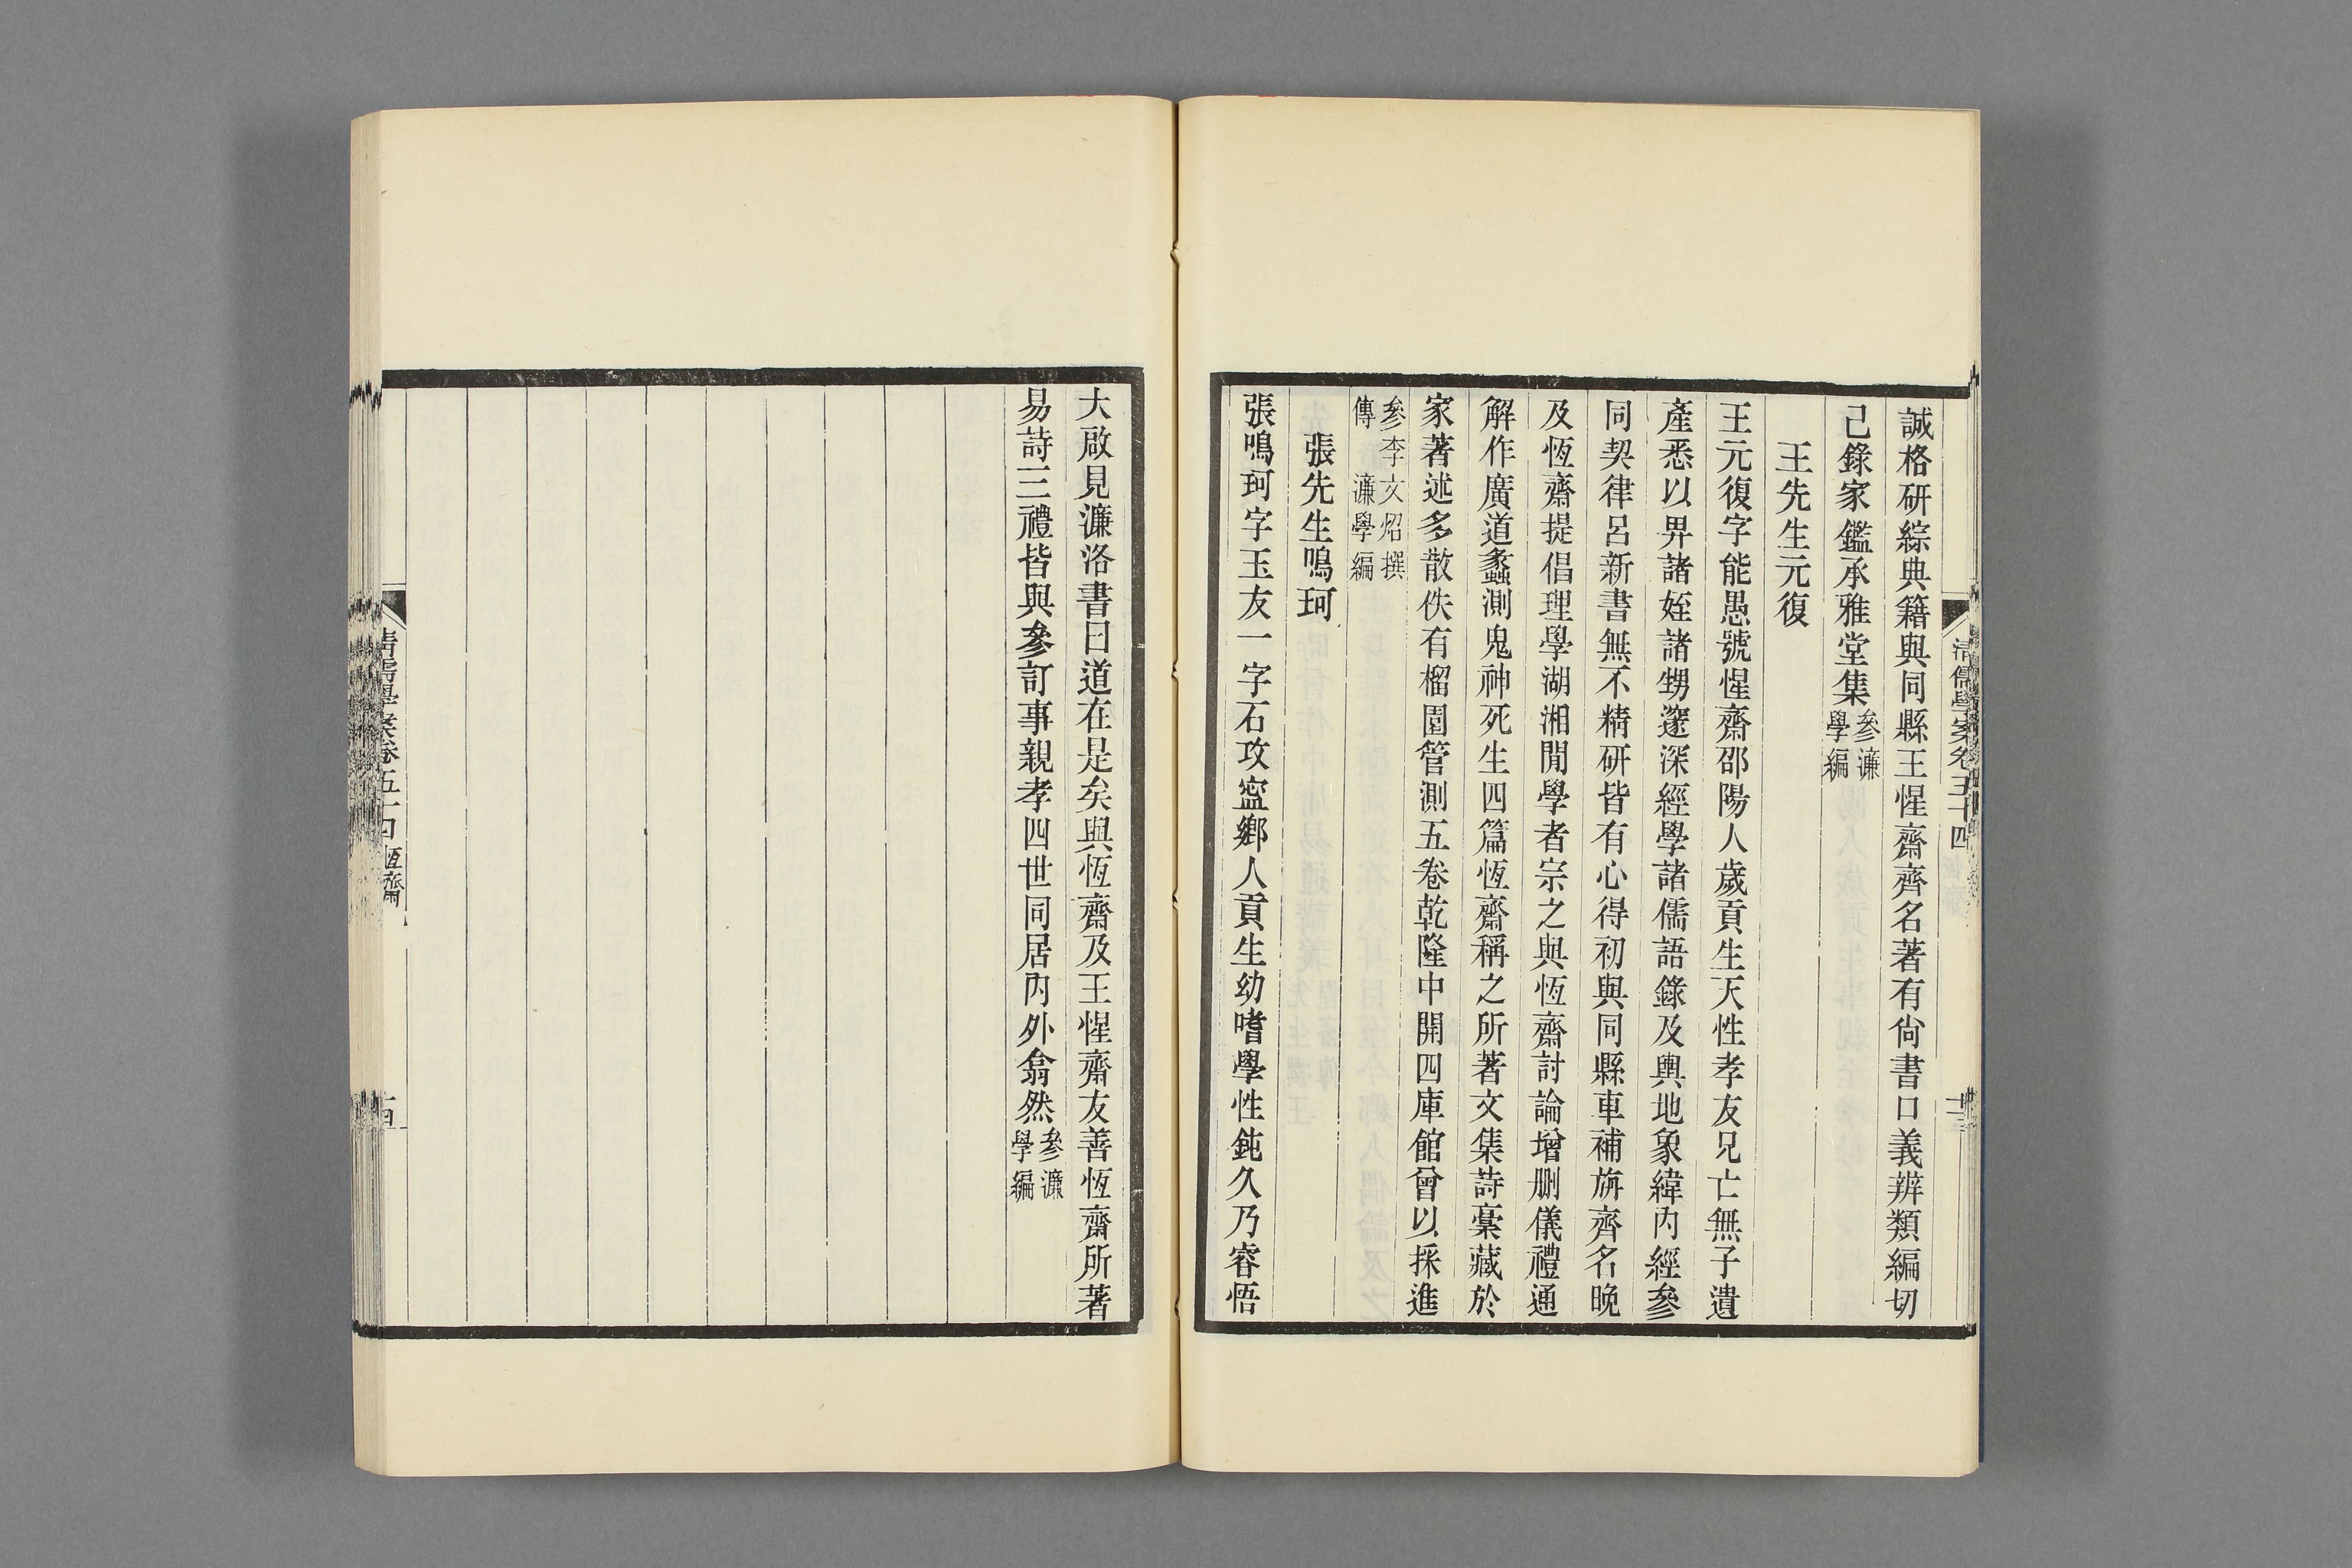 清儒學案卷五十四
誠格研綜典籍與同縣王惺齋齊名著有尙書口義辨類編切
己錄家鑑承雅堂集參濂學編
王先生元復
王元復字能愚號惺齋邵陽人歲貢生天性孝友兄亡無子遺
產悉以畀諸姪諸甥邃深經學諸儒語錄及輿地象緯內經參
同契律呂新書無不精研皆有心得初與同縣車補旃齊名晚
及恆齋提倡理學湖湘閒學者宗之與恆齋討論增刪儀禮通
解作廣道蠡測鬼神死生四篇恆齋稱之所著文集詩稾藏於
家著述多散佚有榴園管測五卷乾隆中開四庫館曾以採進
參李文炤撰
傳　濂學編
張先生鳴珂
張鳴珂字玉友一字石攻寍鄉人貢生幼嗜學性鈍久乃睿悟
大啟見濂洛書曰道在是矣與恆齋及王惺齋友善恆齋所著
易詩三禮皆與參訂事親孝四世同居內外翕然參濂學編
清儒學案卷五十四 恆齋